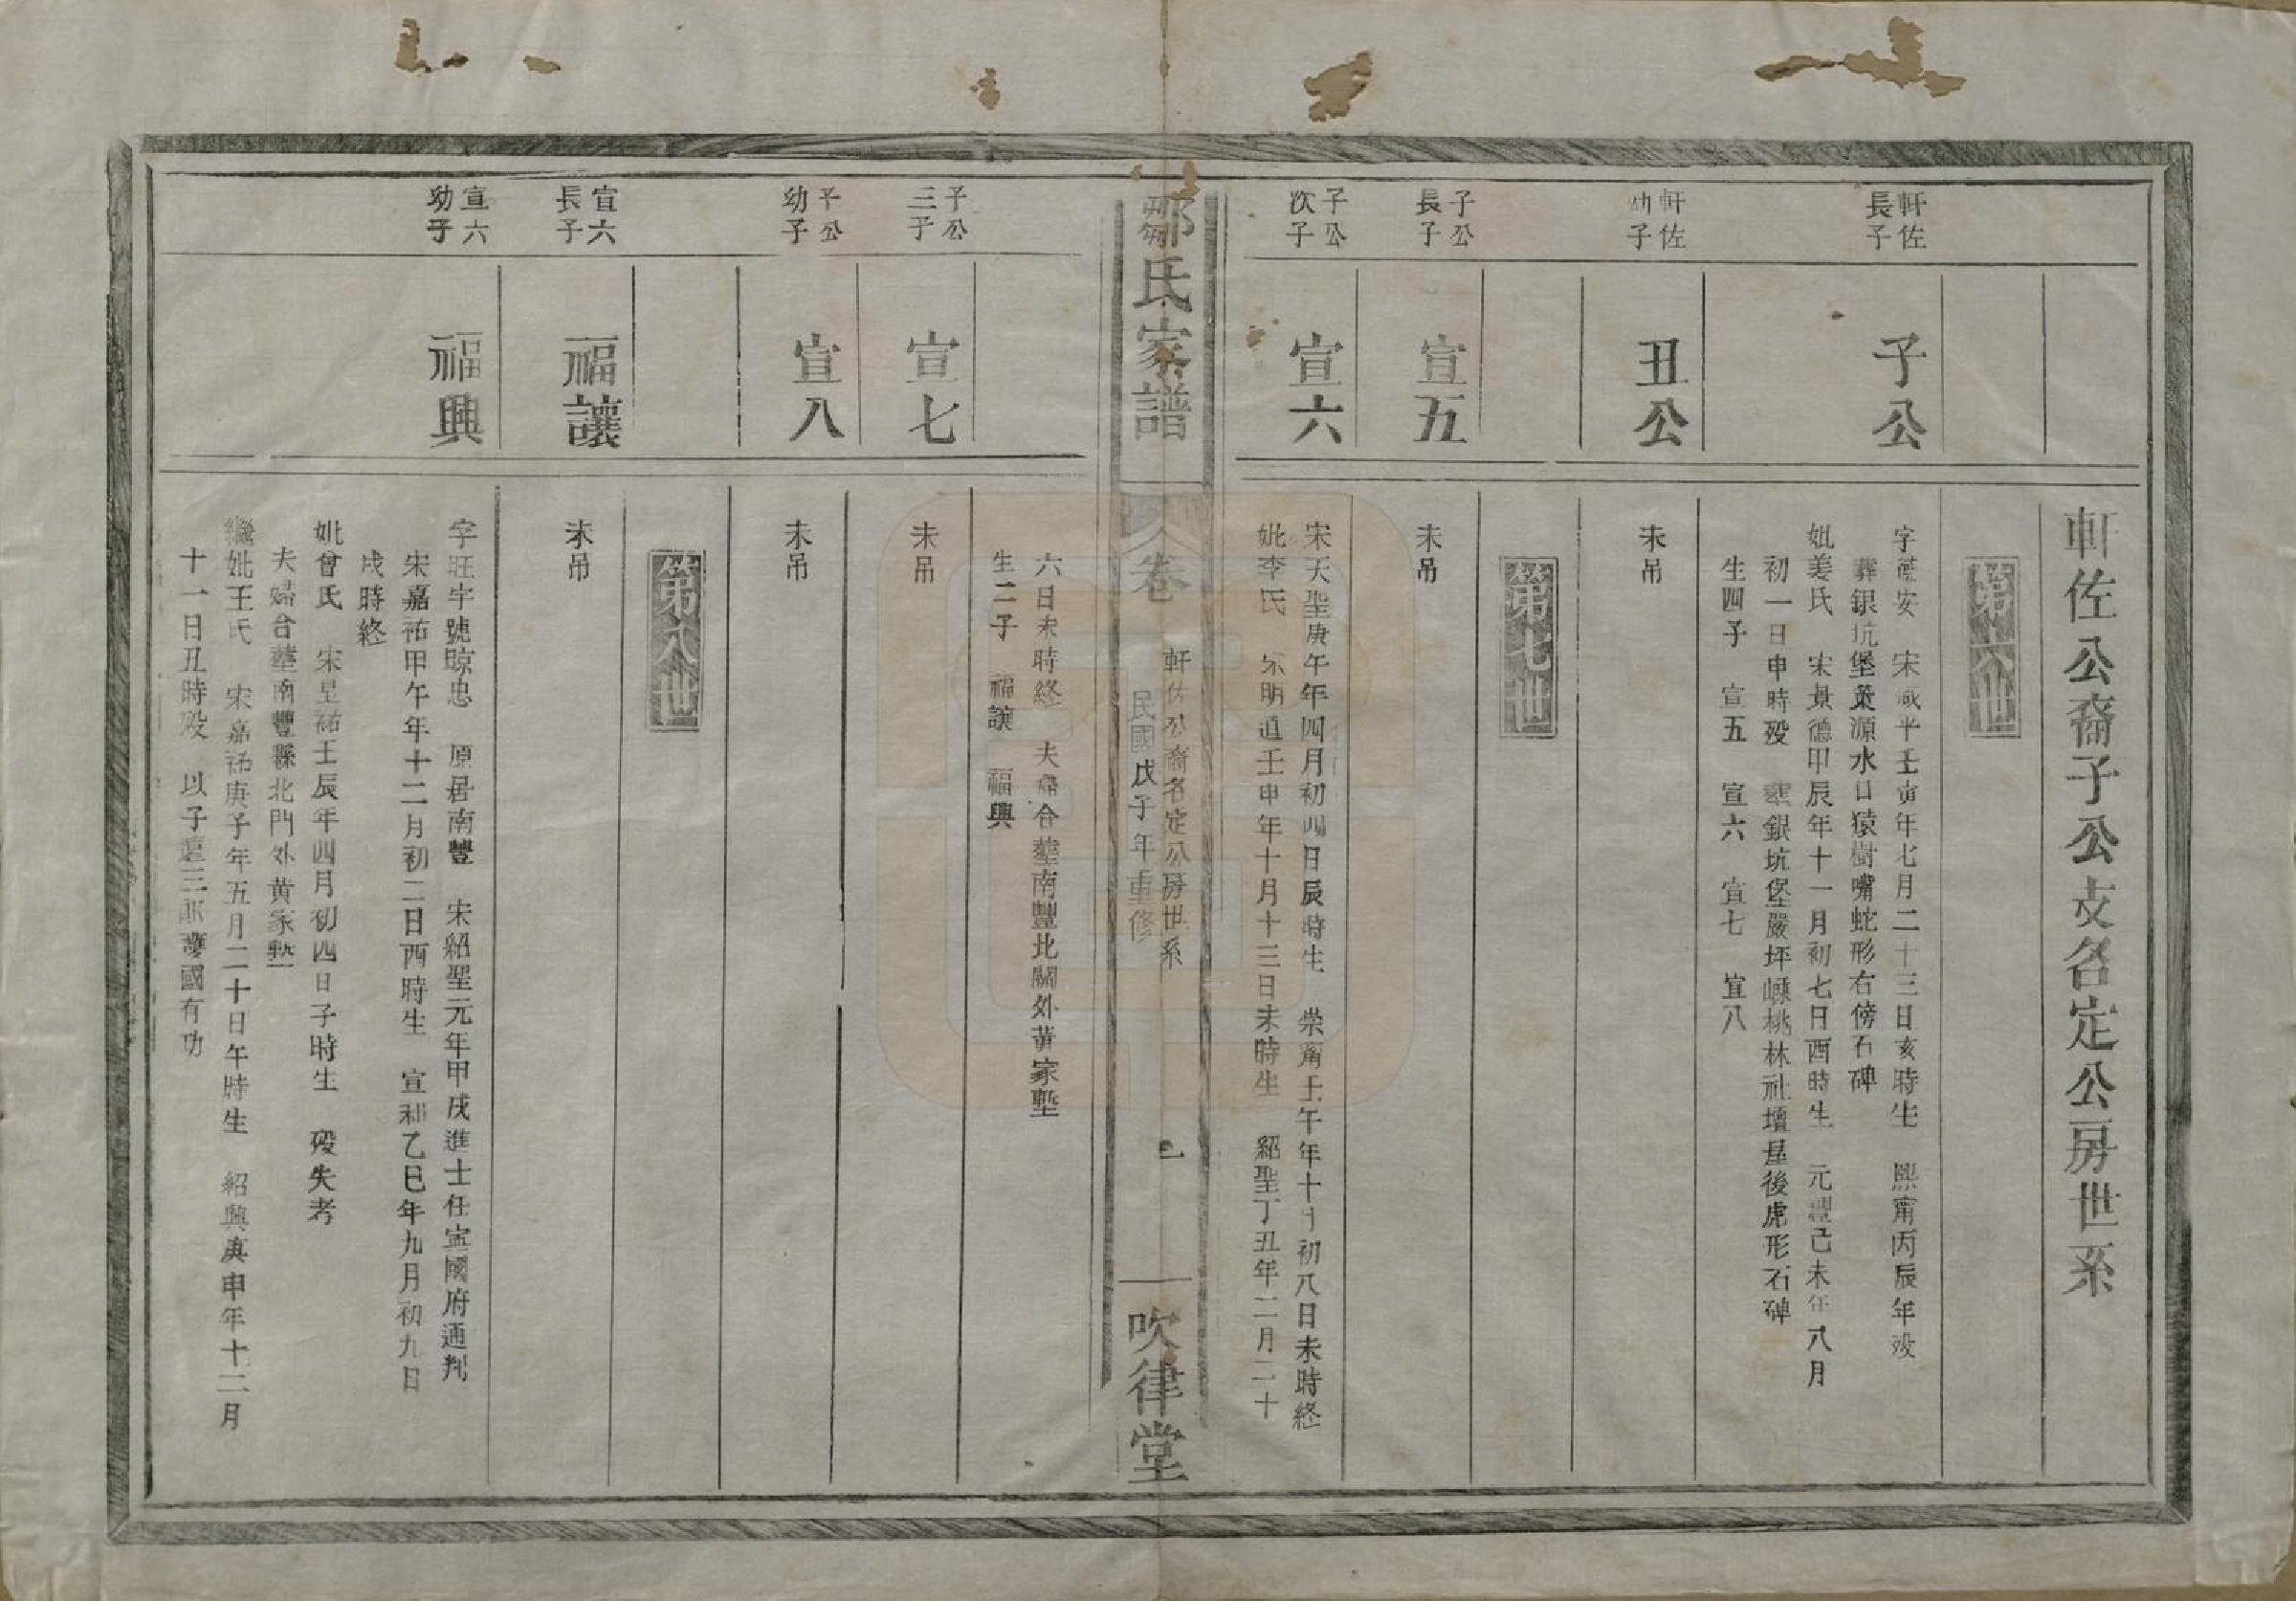 軒佐公裔子公支名定公房世系
第六世
軒佐
長子
子公
字 安　宋咸平壬寅年七月二十三日亥時生　熙甯丙辰年歿
葬銀坑堡葉源水口猿樹嘴蛇形右傍石碑
妣姜氏　宋景德甲辰年十一月初七日酉時生　元豐己未年八月
初一日申時歿　塟銀坑堡嚴坪嵊桃林社壇星後虎形石碑
生四子　宣五　宣六　宣七　宣八
軒佐
幼子
丑公
未吊
第七世
子公
長子
宣五
未吊
子公
次子
宣六
宋天聖庚午年四月初四日辰時生　崇甯壬午年十月初八日未時終
妣李氏　宋明道壬申年十月十三日未時生　紹聖丁丑年二月二十
氏家譜
卷
軒佐公裔名定公房世系
民國戊子年重修
吹律堂
六日未時終　夫婦合塟南豐北關外黃家塹
生二子　福讓　福興
子公
三子
宣七
未吊
子公
幼子
宣八
未吊
第八世
宣六
長子
福讓
未吊
宣六
幼子
福興
字旺宇號晾忠　原居南豐　宋紹聖元年甲戌進士任寍國府通判
宋嘉祐甲午年十二月初二日酉時生　宣和乙巳年九月初九日
戌時終
妣曾氏　宋皇祐壬辰年四月初四日子時生　歿失考
夫婦合塟南豐縣北門外黃家塹
繼妣王氏　宋嘉祐庚子年五月二十日午時生　紹興庚申年十二月
十一日丑時歿　以子 三 國有功